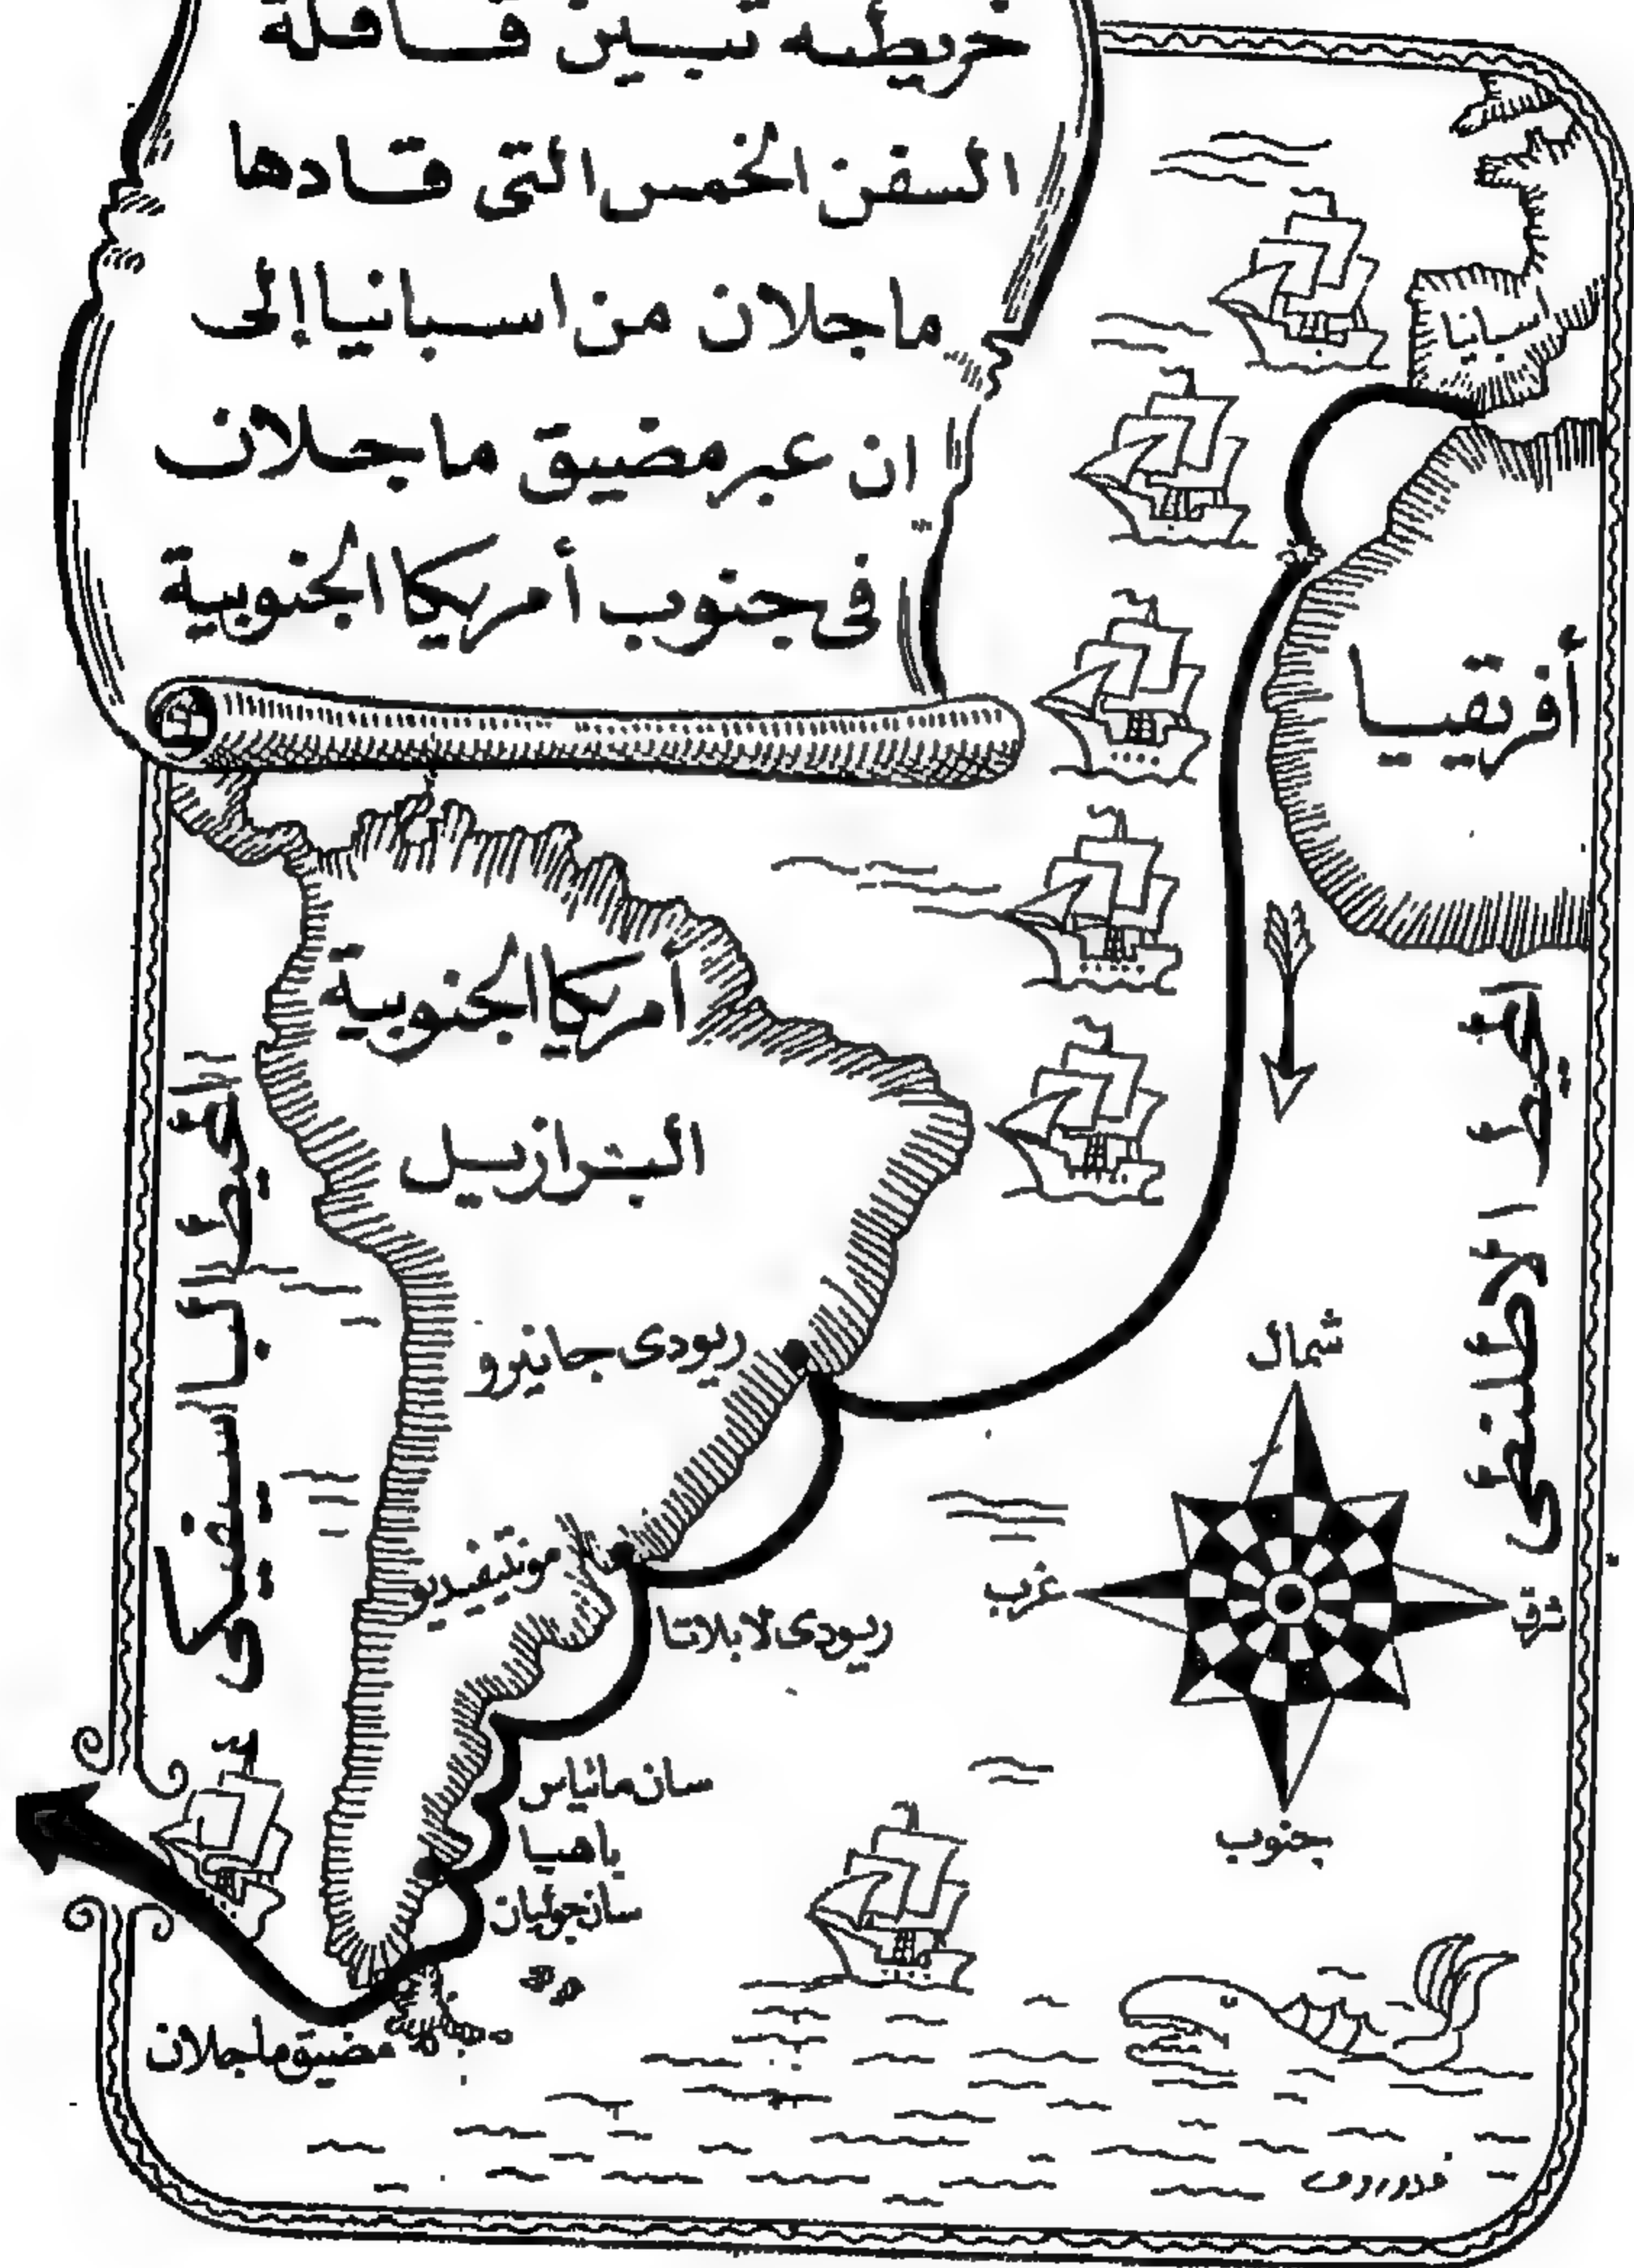 خريطه تبين قافلة
السفن الخمس التى قادها
ماجلان من اسبانيا إلى
ان عبر مضيق ماجلان
فى جنوب أمريكا الجنوبية
أفريقيا
أمريكا الجنوبية
البرازيل
المحيط الاطلنطى
المحيط الباسفيكى
ريودى جانيرو
مونتيفيديو
ريودى لابلاتا
سان ماتياس
باهيا
سان جوليان
مضيق ماجلان
شمال
غرب
شرق
جنوب